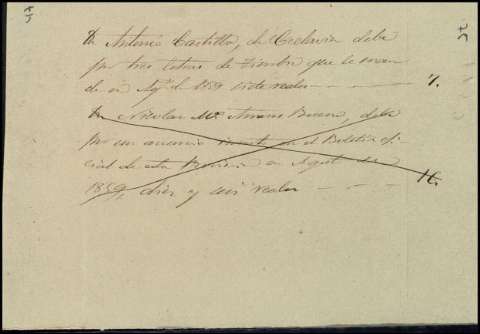 Dn Antonio Castillo, de Cechevin debe
por tres letras de Siembre que le man
dé en Agto. de 1859 siete reales - - - 7.
Dn Nicolas Ma. Bueno, debe
por un anuncio en el Boletin ofi
cial de esta Provincia en Agosto de
1859, diez y seis reales - - - 16.